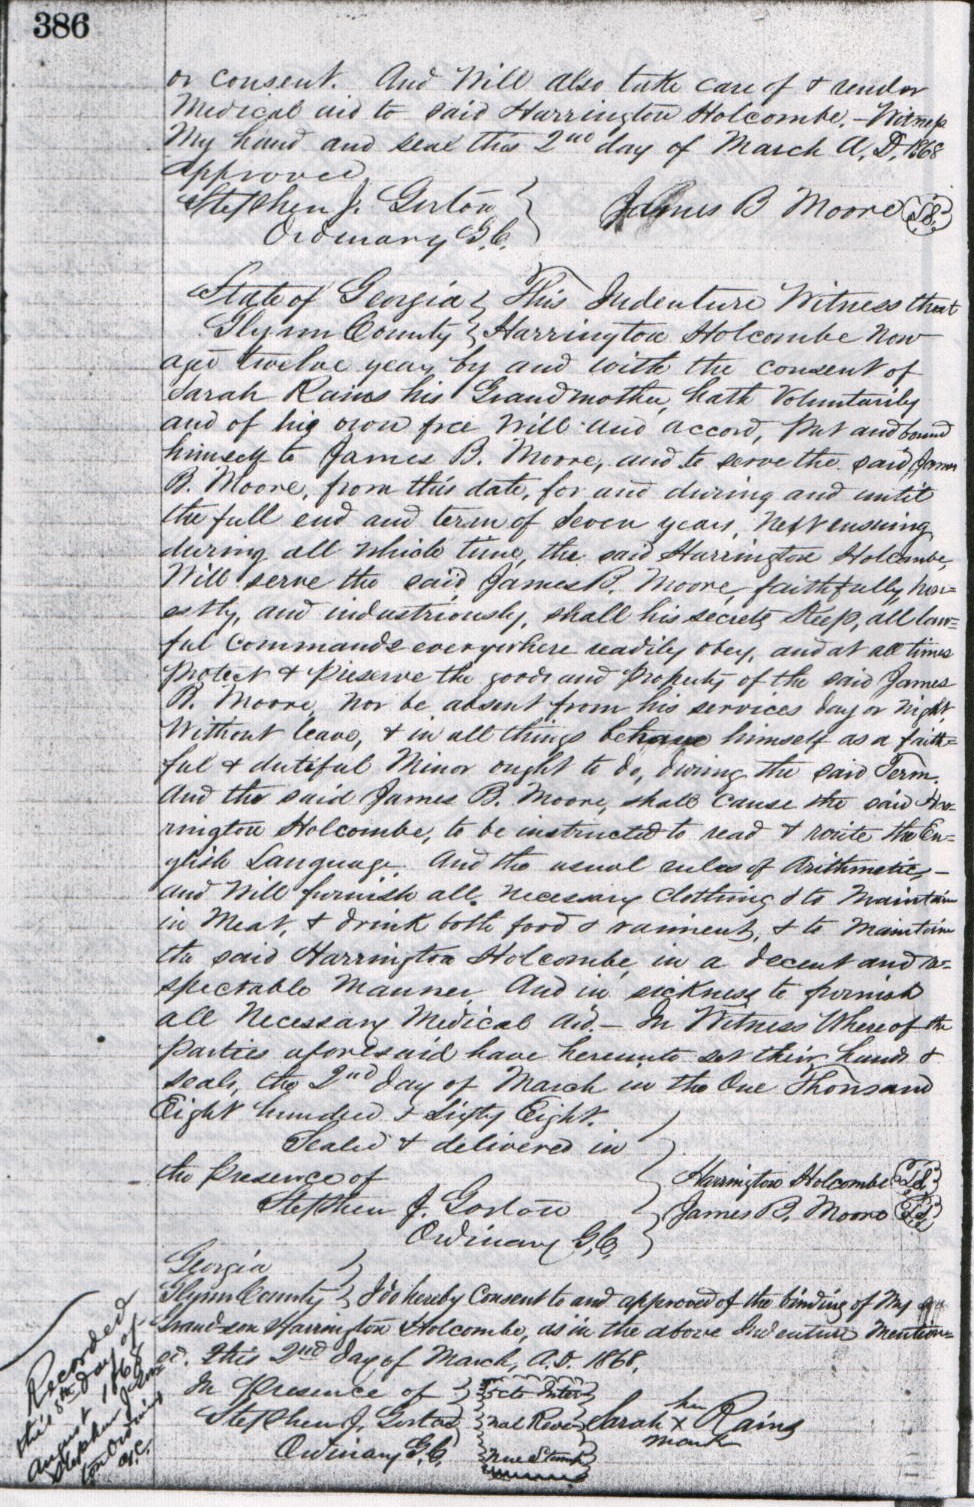 386
or consent. And Will also take care of & render
Medical aid to said Harrington Holcombe. - Witness
My hand and seal this 2nd day of March A.D. 1868
Approved
Stephen J. Gorton } James B Moore L.S.
Ordinary G.C.
State of Georgia } This Indenture Witness that
Glynn County } Harrington Holcombe Now
age twelve years by and with the consent of
Sarah Rains his Grandmother, hath Voluntarily
and of his own free Will and accord, Put and bound
himself to James B. Moore, and to serve the said James
B. Moore, from this date, for and during and until
the full end and term of Seven years, Next ensuing
during all which time, the said Harrington Holcombe,
Will serve the said James B. Moore faithfully, hon=
estly, and industriously, shall his secrets Keep, all law=
ful Commands everywhere readily obey, and at all times
Protect & Preserve the goods and Property of the said James
B. Moore, Nor be absent from his services day or Night,
Without leave, & in all things behave himself as a faith=
ful & dutiful Minor ought to do, during the said Term.
And the said James B. Moore, shall cause the said Har
rington Holcombe, to be instructed to read & write the En=
glish Language. And the usual rules of Arithmetic, -
and Will furnish all necessary Clothing & to Maintain
in Meat, & drink both food & raiment, & to Maintain
the said Harrington Holcombe, in a decent and re=
spectable Manner. And in sickness to furnish
all Necessary Medical Aid. - In Witness Whereof the
Parties aforesaid have hereunto set their hands &
seals, the 2nd day of March in the One Thousand
Eight hundred & Sixty Eight.
Sealed & delivered in
the Presence of } Harrington Holcombe L.S.
Stephen J. Gorton } James B. Moore L.S.
Ordinary G.C.
Georgia }
Glynn County } I do hereby Consent to and approved of the binding of My
Grandson Harrington Holcombe, as in the above Indenture Mention=
ed. This 2nd day of March, A.D. 1868.
In Presence of } 5 cts Inter
Stephen J. Gorton } nal Reve Sarah her x mark Rains
Ordinary G.C. nue Stamp
Recorded
this 8th day of
August 1868
Stephen J. Gor
ton Ordinary
G.C.